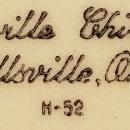 ville Chi
llsville, O
H-52